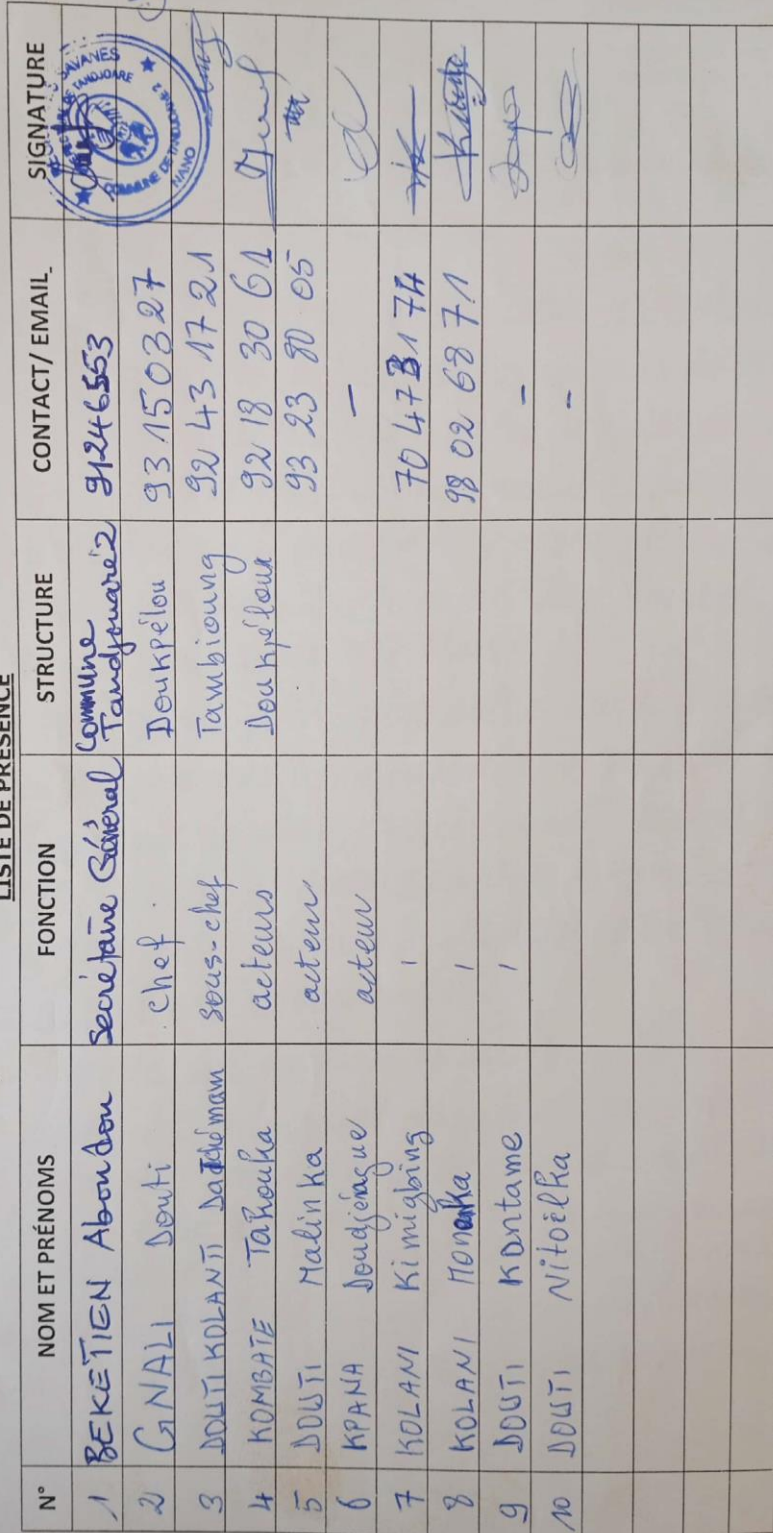 LISTE DE PRÉSENCE
N° NOM ET PRÉNOMS FONCTION STRUCTURE CONTACT/ EMAIL SIGNATURE
1 BEKETIEN Abondon Secrétaire Général Commune Tandjouaré2 91246553
2 GNALI Douti chef Doukpélou 93150327
3 DOUTI KOLANTI sous-chef Tambioung 92 43 17 21
4 KOMBATE Takouka acteurs Doukpélou 92 18 30 61
5 DOUTI Malinka acteur 93 23 80 05
6 KPANA acteur -
7 KOLANI Kimigbing ' 70 47 31 74
8 KOLANI ' 98 02 68 71
9 DOUTI Kontame ' -
10 DOUTI Nitoëlka -
SAVANES
COMMUNE DE TANDJOARE 2
NANO